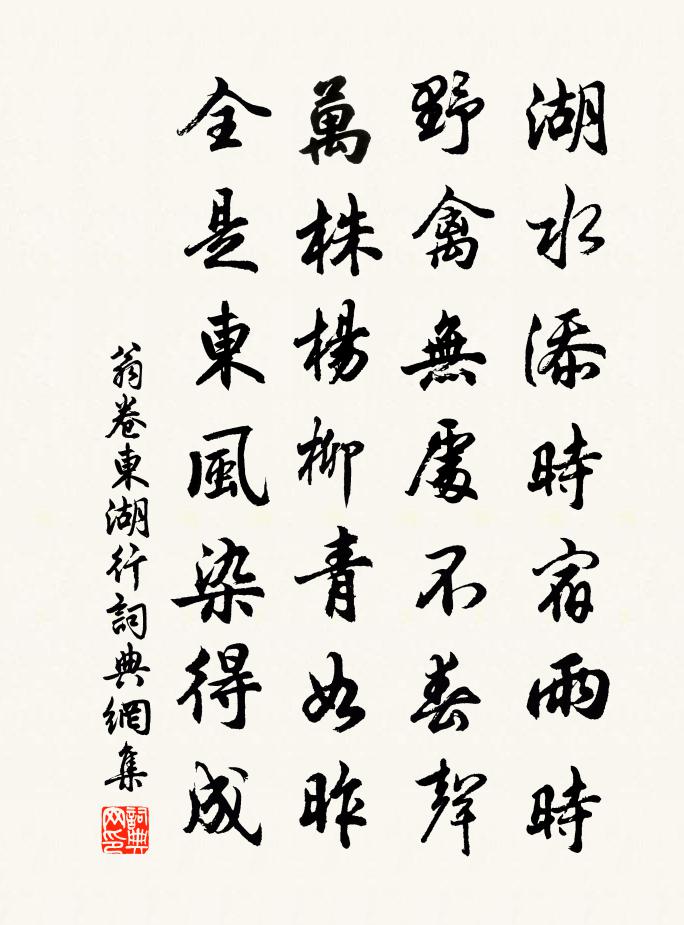 湖水添時宵雨時
野禽無處不春聲
萬株楊柳青如昨
全是東風染得成
翁卷東湖行詞典網集
詞典网印